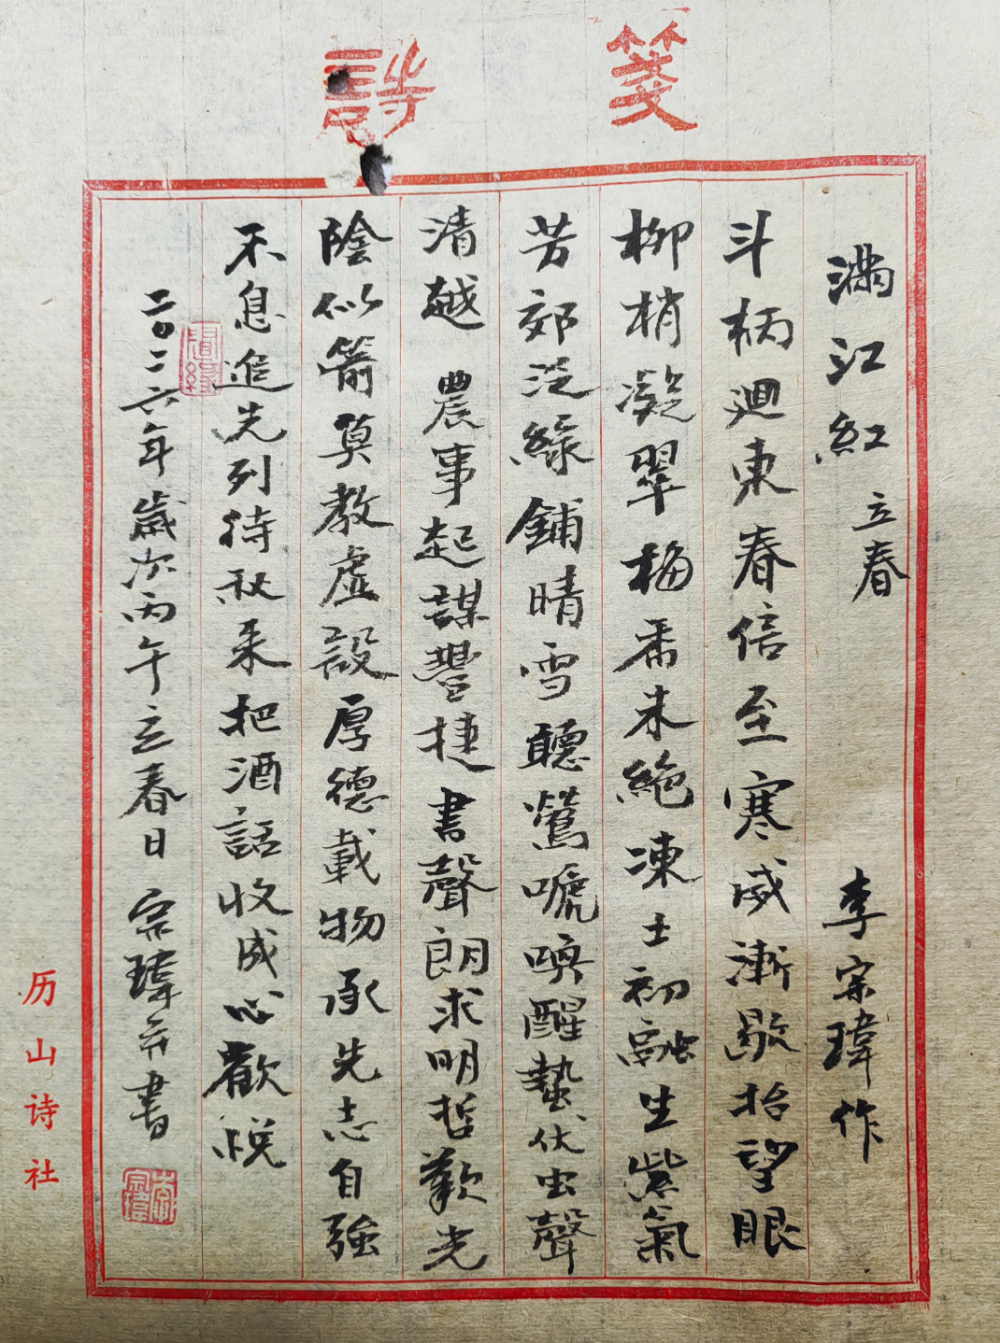 箋詩
滿江紅 立春 李宗瑋作
斗柄迴東春信至寒威漸歇抬望眼
柳梢凝翠梅香未絶凍土初融生紫氣
芳郊泛綠鋪晴雪聽鶯嗁喚醒蟄伏虫聲
清越 農事起謀豐捷書聲朗求明哲歎光
陰似箭莫教虛設厚德載物承先志自強
不息追先列待秋来把酒話收成心歡悦
二〇二六年歲次丙午立春日宗瑋并書
李宗瑋
历山诗社